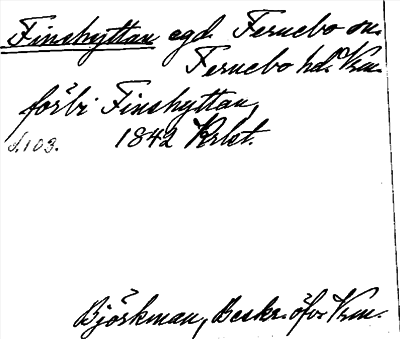 Finshyttan egd. Fernebo sn.
Fernebo hd. Vrm.
förbi Finshyttan,
s. 103. 1842 Krlst.
Björkman, Beskr. öfv. Vrm.